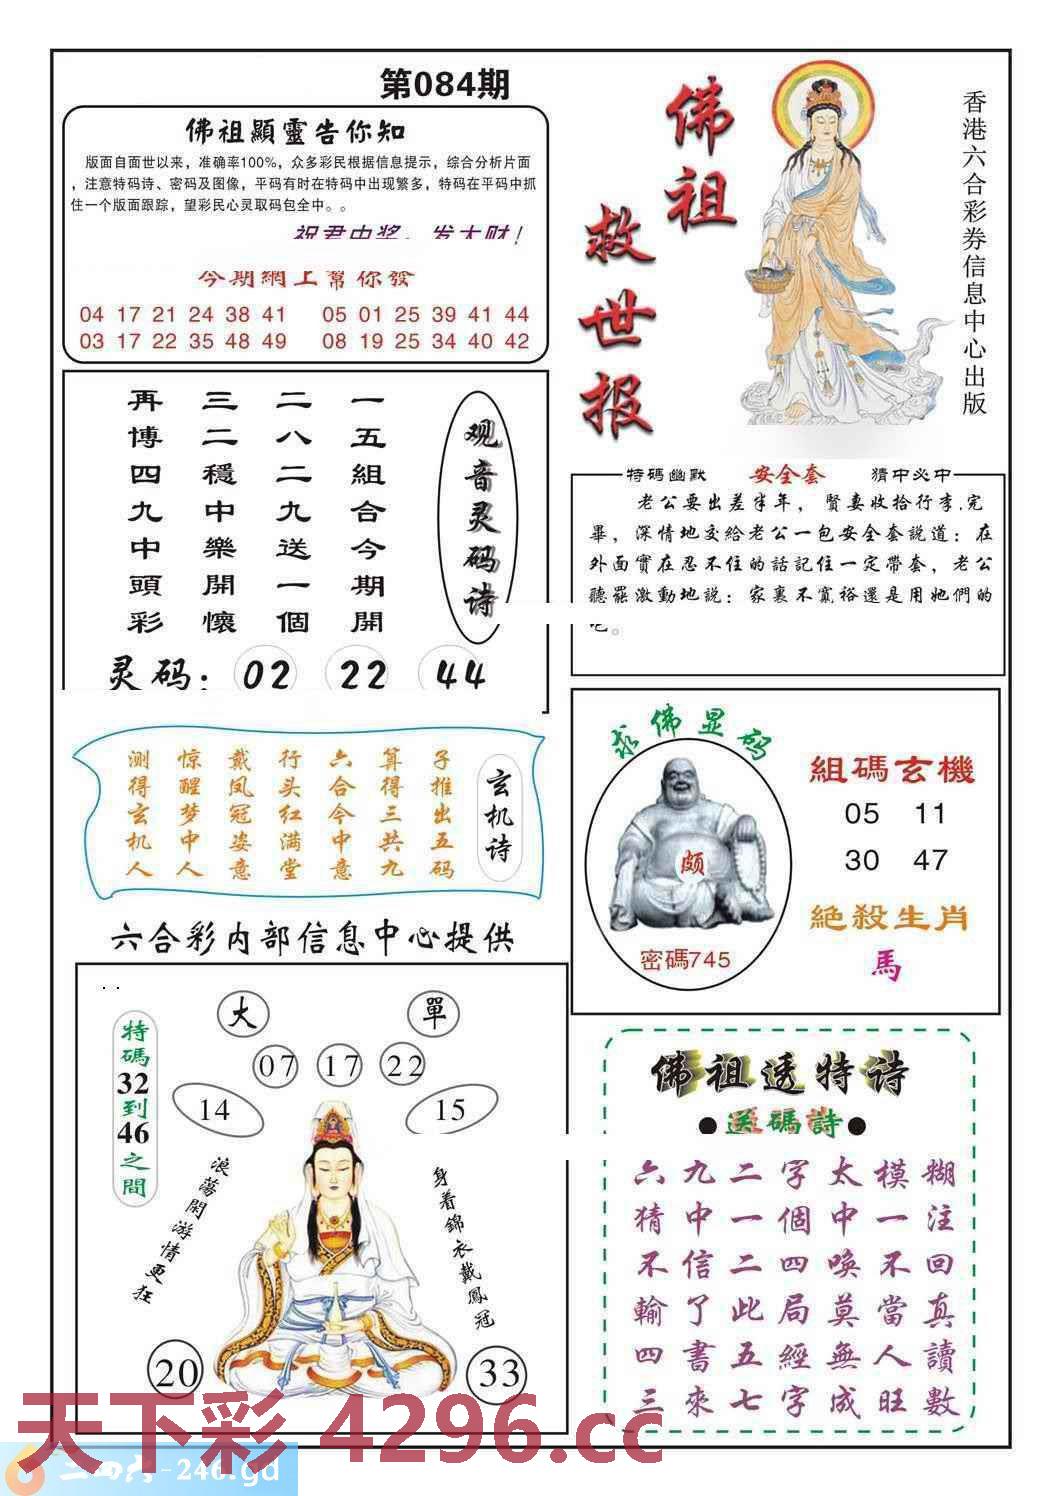 第084期
佛祖顯靈告你知
版面自面世以来，准确率100%，众多彩民根据信息提示，综合分析片面
，注意特码诗、密码及图像，平码有时在特码中出现繁多，特码在平码中抓
住一个版面跟踪，望彩民心灵取码包全中。。
祝君中奖，发大财！
今期網上幫你發
04 17 21 24 38 41 05 01 25 39 41 44
03 17 22 35 48 49 08 19 25 34 40 42
佛祖
救世报
香港六合彩券信息中心出版
观音灵码诗
一五組合今期開
二八二九送一個
三二穩中樂開懷
再博四九中頭彩
灵码：02 22 44
特碼幽默 安全套 猜中必中
老公要出差半年，賢妻收拾行李.完
畢，深情地交給老公一包安全套説道：在
外面實在忍不住的話記住一定帶套，老公
聽罷激動地説：家裏不寬裕還是用她們的
吧。
玄机诗
子推出五码
算得三共九
六合今中意
行头红满堂
戴凤冠姿意
惊醒梦中人
测得玄机人
求佛显码
颇
密碼745
組碼玄機
05 11
30 47
絕殺生肖
馬
六合彩内部信息中心提供
大
單
07 17 22
14
15
特碼32到46之間
浪蕩閑游情更狂
身着錦衣戴鳳冠
20
33
佛祖透特诗
●送碼詩●
六九二字太模糊
猜中一個中一注
不信二四喚不回
輸了此局莫當真
四書五經無人讀
三來七字成旺數
天下彩 4296.cc
二四六-246.gd